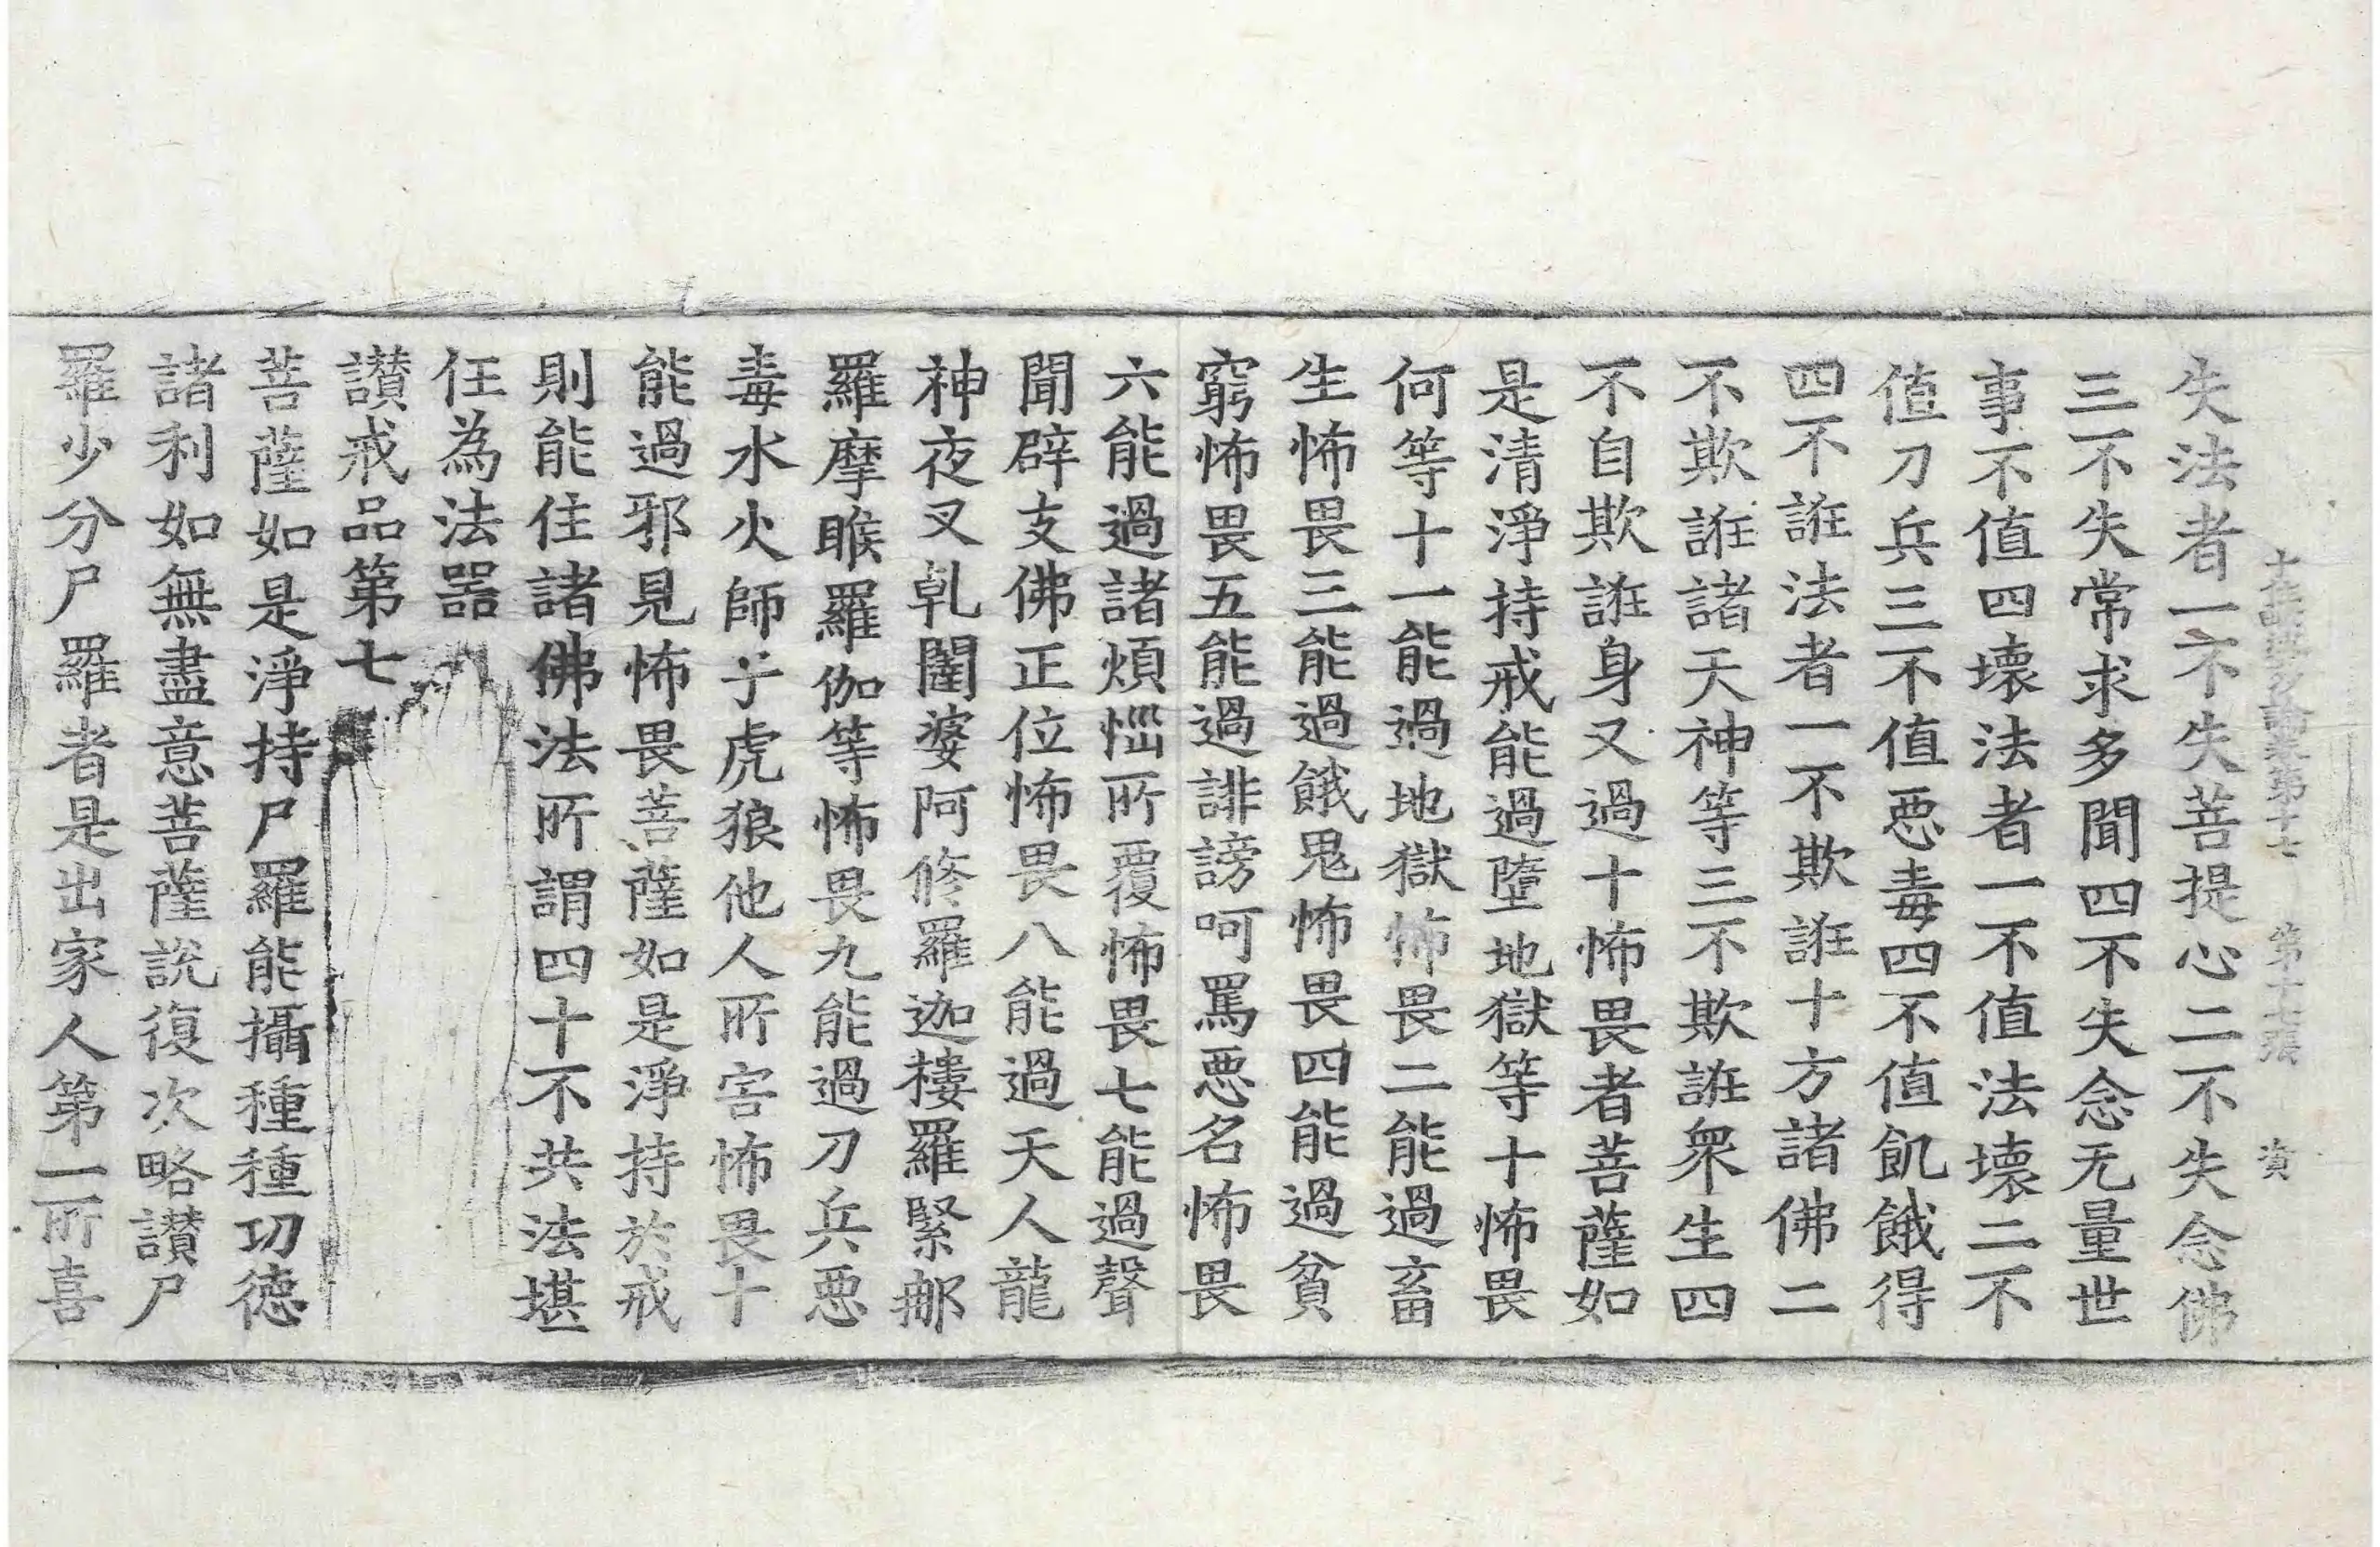 十住毗婆沙論卷第十七 第十七張 資
失法者一不失菩提心二不失念佛
三不失常求多聞四不失念无量世
事不值四壞法者一不值法壞二不
值刀兵三不值惡毒四不值飢餓得
四不誑法者一不欺誑十方諸佛二
不欺誑諸天神等三不欺誑衆生四
不自欺誑身又過十怖畏者菩薩如
是清淨持戒能過墮地獄等十怖畏
何等十一能過地獄怖畏二能過畜
生怖畏三能過餓鬼怖畏四能過貧
窮怖畏五能過誹謗呵罵惡名怖畏
六能過諸煩惱所覆怖畏七能過聲
聞辟支佛正位怖畏八能過天人龍
神夜叉乹闥婆阿脩羅迦樓羅緊那
羅摩睺羅伽等怖畏九能過刀兵惡
毒水火師子虎狼他人所害怖畏十
能過邪見怖畏菩薩如是淨持於戒
則能住諸佛法所謂四十不共法堪
任為法器
讃戒品第七
菩薩如是淨持尸羅能攝種種功德
諸利如無盡意菩薩說復次略讃尸
羅少分尸羅者是出家人第一所喜